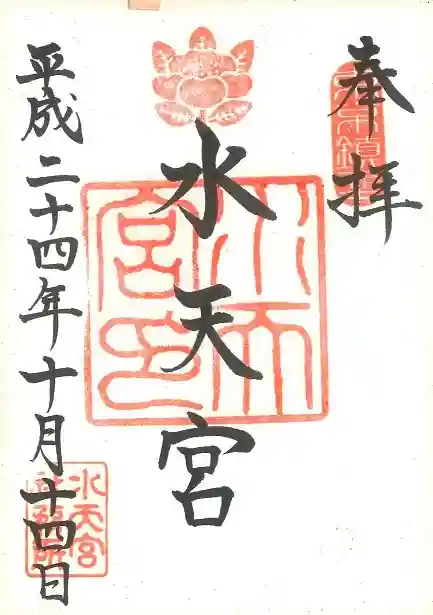 奉拝
水天宮
平成二十四年十月十四日
水天宮印
水天宮